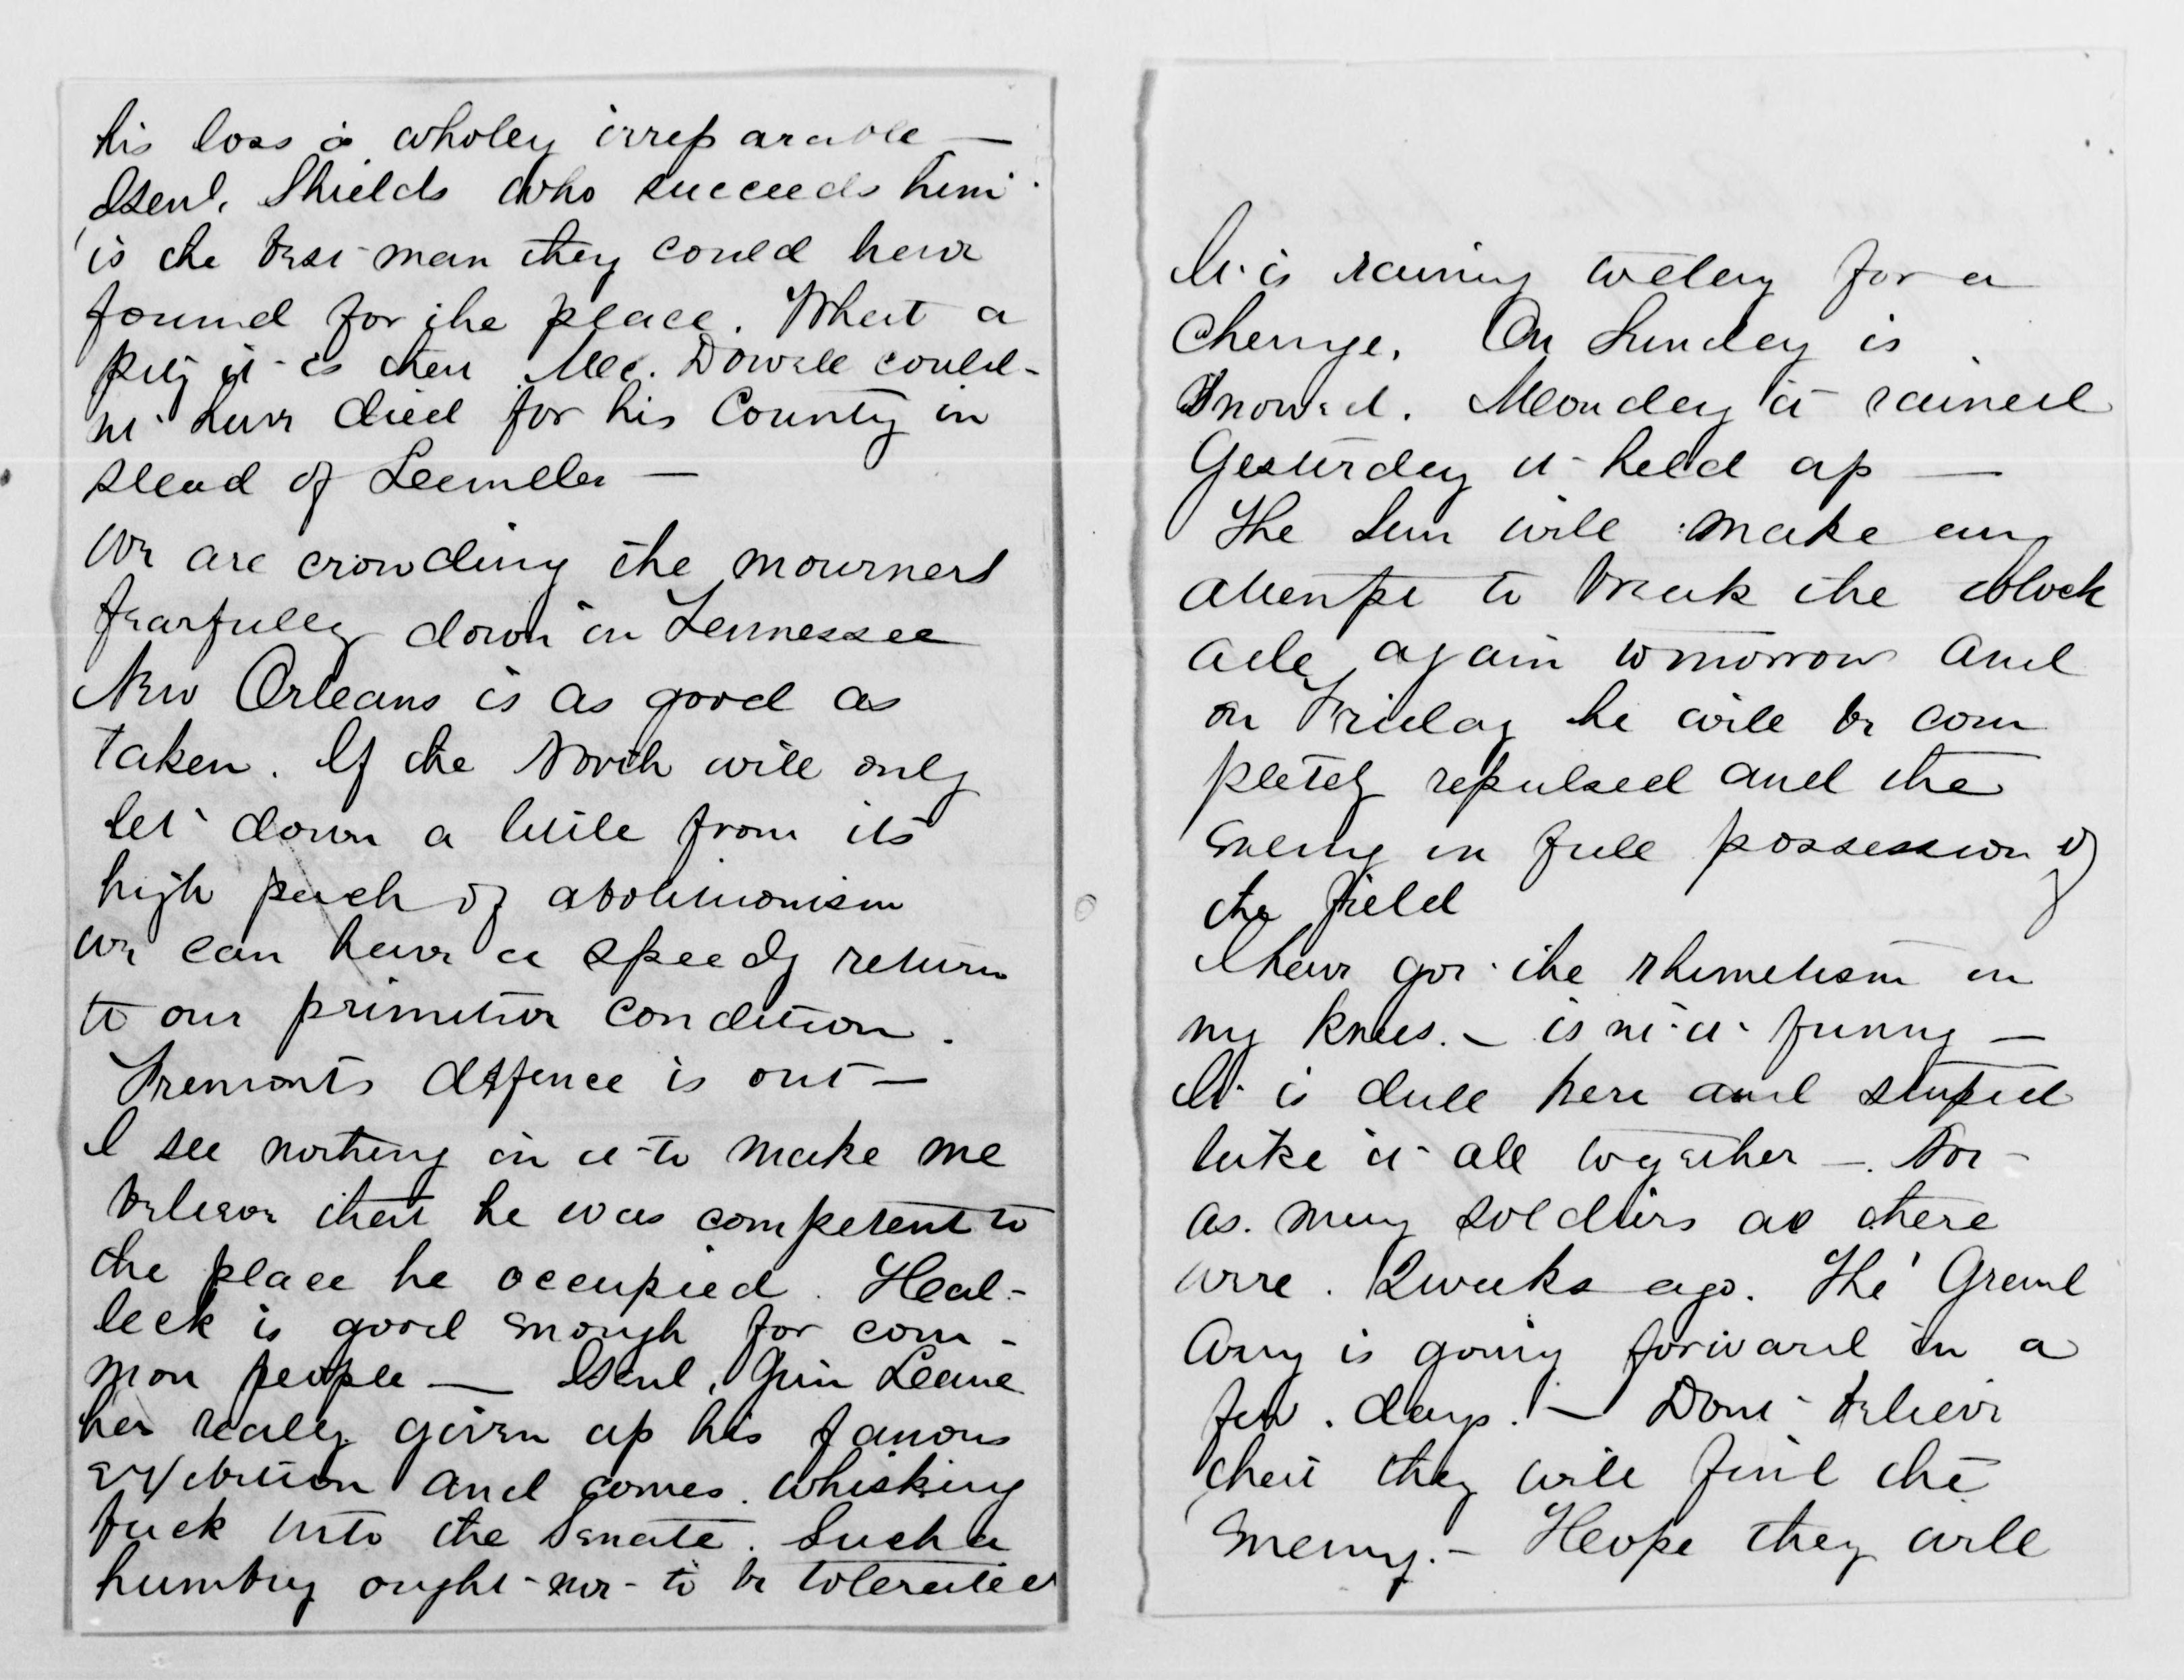 his loss is wholey irreparable —
Genl. Shields who succeeds him
is the best man they could have
found for the place. What a
pity it is that Mc. Dowell could-
nt have died for his County in
stead of Lander —
We are crowding the mourners
fearfully down in Tennessee
New Orleans is as good as
taken. If the North will only
let down a little from its
high perch of abolitionism
we can have a speedy return
to our primitive condition.
Fremonts defence is out —
I see nothing in it to make me
believe that he was competent to
the place he occupied. Hal-
leck is good enough for com-
mon people — Genl. Jim Lane
has really given up his famous
and comes whisking
back into the Senate. Such a
humbug ought not to be tolerated
It is raining today for a
change. On Sunday is
Snowed. Monday it rained
Yesterday it held up —
The Sun will make an
attempt to break the block
ade again tomorrow and
on Friday he will be com
pletely repulsed and the
enemy in full possession of
the field
I have got the rhumetism in
my knees. — is nt it funny —
It is dull here and stupid
take it all together —. Not
as many soldiers as there
were 2 weeks ago. The Grand
Army is going forward in a
few days. — Dont believe
that they will find the
enemy. — Hope they will